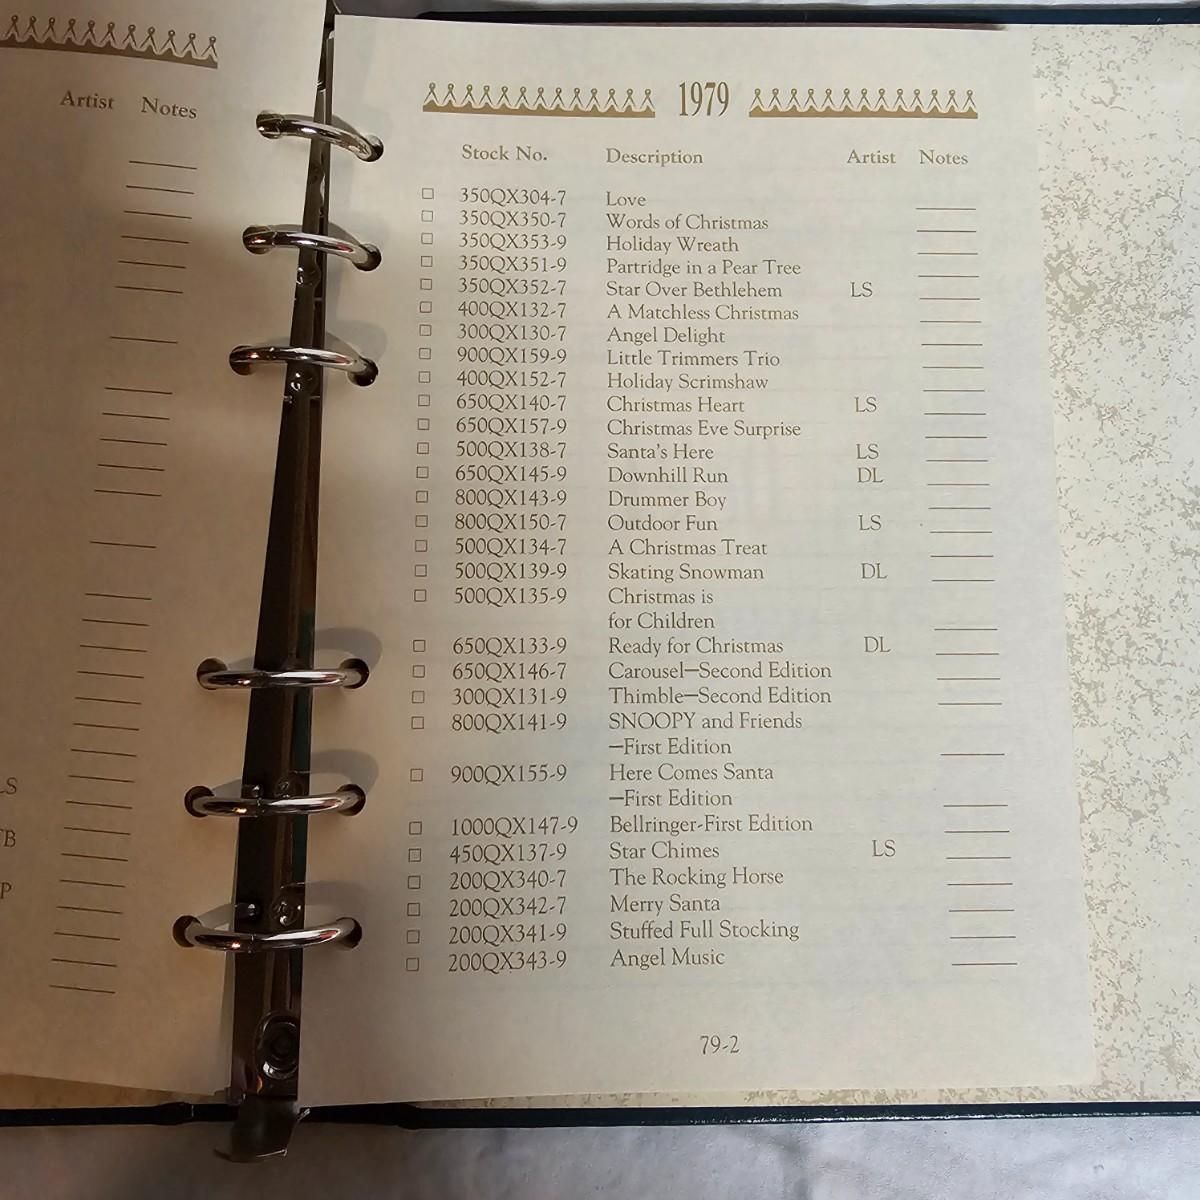 Artist Notes
LS
TB
P
1979
Stock No. Description Artist Notes
350QX304-7 Love
350QX350-7 Words of Christmas
350QX353-9 Holiday Wreath
350QX351-9 Partridge in a Pear Tree
350QX352-7 Star Over Bethlehem LS
400QX132-7 A Matchless Christmas
300QX130-7 Angel Delight
900QX159-9 Little Trimmers Trio
400QX152-7 Holiday Scrimshaw
650QX140-7 Christmas Heart LS
650QX157-9 Christmas Eve Surprise
500QX138-7 Santa's Here LS
650QX145-9 Downhill Run DL
800QX143-9 Drummer Boy
800QX150-7 Outdoor Fun LS
500QX134-7 A Christmas Treat
500QX139-9 Skating Snowman DL
500QX135-9 Christmas is
for Children
650QX133-9 Ready for Christmas DL
650QX146-7 Carousel—Second Edition
300QX131-9 Thimble—Second Edition
800QX141-9 SNOOPY and Friends
—First Edition
900QX155-9 Here Comes Santa
—First Edition
1000QX147-9 Bellringer-First Edition
450QX137-9 Star Chimes LS
200QX340-7 The Rocking Horse
200QX342-7 Merry Santa
200QX341-9 Stuffed Full Stocking
200QX343-9 Angel Music
79-2